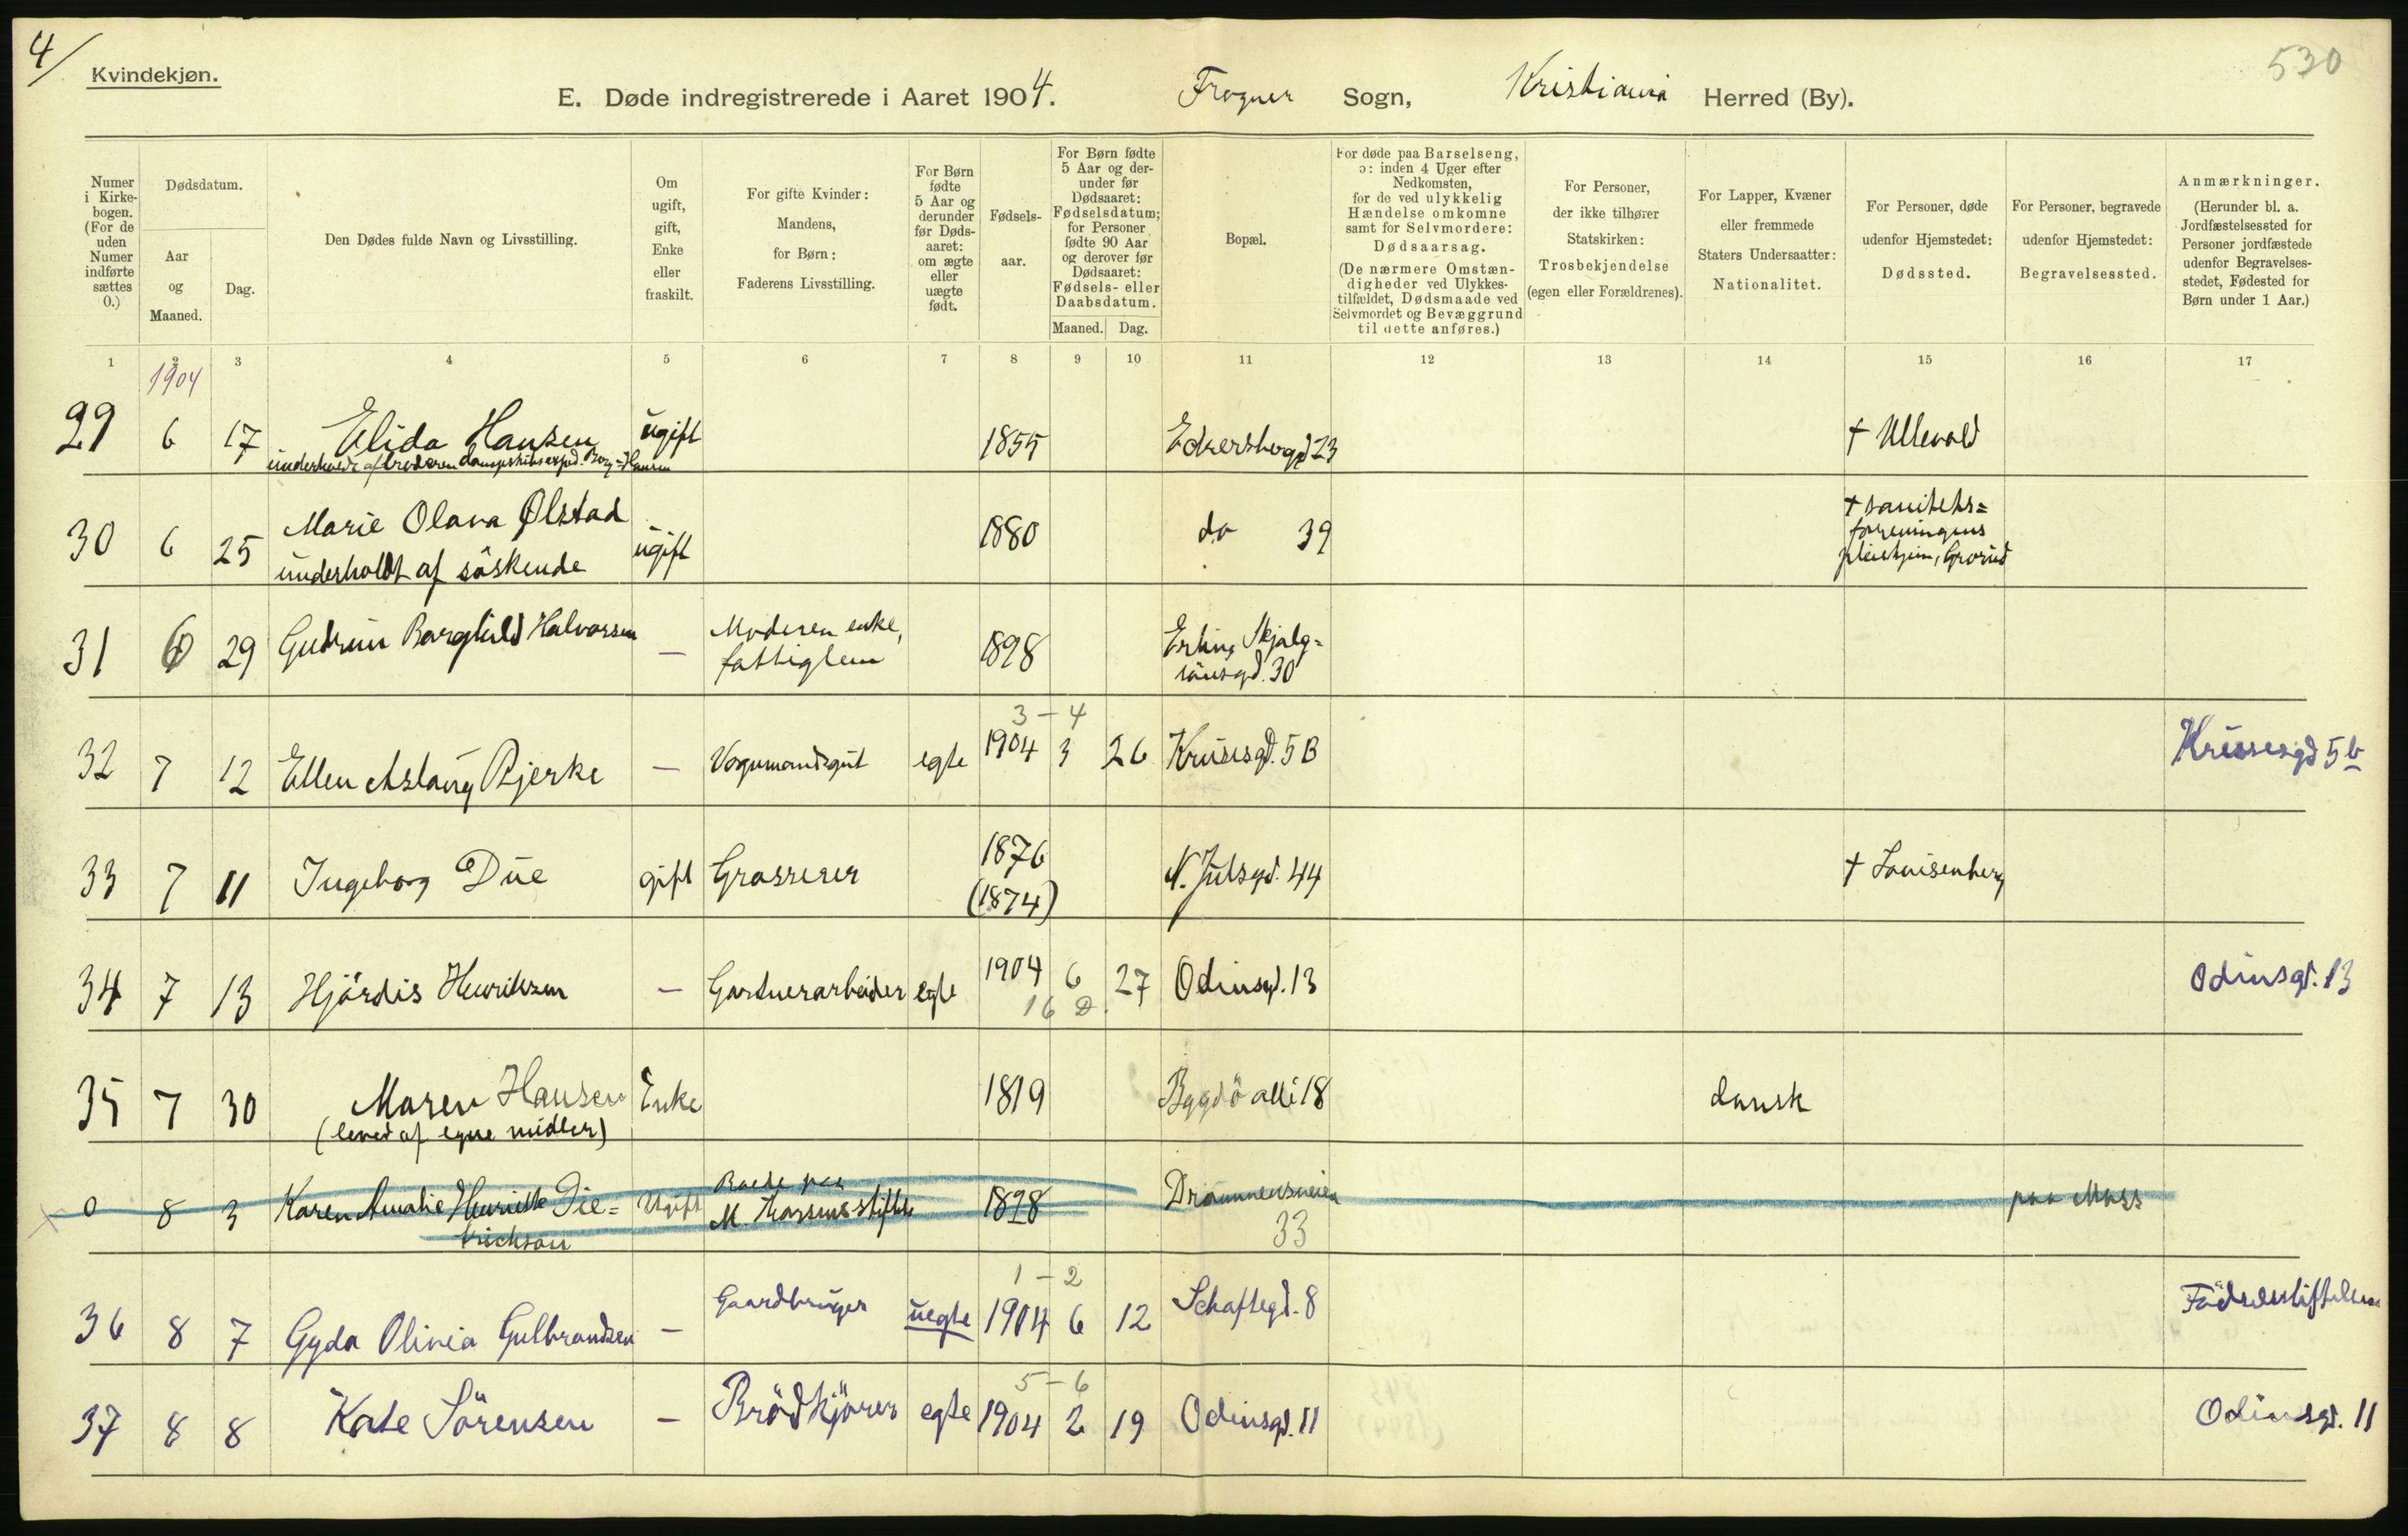 4/
Kvindekjøn.
530
E. Døde indregistrerede i Aaret 1904. Frogner Sogn, Kristiania Herred (By).
Numer i Kirke-bogen. (For de uden Numer indførte sættes 0.)
Dødsdatum.
Aar og Maaned.
Dag.
Den Dødes fulde Navn og Livsstilling.
Om ugift, gift, Enke eller fraskilt.
For gifte Kvinder: Mandens, for Børn: Faderens Livsstilling.
For Børn fødte 5 Aar og derunder før Døds-aaret: om ægte eller uægte født.
Fødsels-aar.
For Børn fødte 5 Aar og der-under før Dødsaaret: Fødselsdatum; for Personer fødte 90 Aar og derover før Dødsaaret: Fødsels- eller Daabsdatum.
Maaned. Dag.
Bopæl.
For døde paa Barselseng, ɔ: inden 4 Uger efter Nedkomsten, for de ved ulykkelig Hændelse omkomne samt for Selvmordere: Dødsaarsag. (De nærmere Omstæn-digheder ved Ulykkes-tilfældet, Dødsmaade ved Selvmordet og Bevæggrund til dette anføres.)
For Personer, der ikke tilhører Statskirken: Trosbekjendelse (egen eller Forældrenes).
For Lapper, Kvæner eller fremmede Staters Undersaatter: Nationalitet.
For Personer, døde udenfor Hjemstedet: Dødssted.
For Personer, begravede udenfor Hjemstedet: Begravelsessted.
Anmærkninger. (Herunder bl. a. Jordfæstelsessted for Personer jordfæstede udenfor Begravelses-stedet, Fødested for Børn under 1 Aar.)
1 2 3 4 5 6 7 8 9 10 11 12 13 14 15 16 17
1904
29 6 17 Elida Hansen ugift 1855 Eckersbergd 23 † Ullevold
underholdt af broderen dampskibsexped. Borg-Hansen
30 6 25 Marie Olava Ølstad ugift 1880 do 39 † sanitets=
foreningens
pleiehjem, Grorud
underholdt af söskende
31 6 29 Gudrun Borghild Halvorsen — Moderen enke, 1898 Erling Skjalg=
fattiglem sönsgd. 30
3 – 4
32 7 12 Ellen Aslaug Bjerke — Vognmandsgut egte 1904 3 26 Krusesgd. 5 B Krusesgd 5 b
33 7 11 Ingeborg Due gift Grosserer 1876 N. Julsgd. 44 † Louisenberg
(1874)
34 7 13 Hjördis Henriksen — Gartnerarbeider egte 1904 6 27 Odinsgd. 13 Odinsgd. 13
16 D.
35 7 30 Maren Hansen Enke 1819 Bygdö alle 18 dansk
(leved af egne midler)
0 8 3 Karen Amalie Henriette Die= Ugift Boede paa 1828 Drammensveien paa Moss
trichson M. Thranes stiftelse 33
1 – 2
36 8 7 Gyda Olivia Gulbrandsen — Gaardbruger uegte 1904 6 12 Schaftegd. 8 Födselsstiftelsen
5 – 6
37 8 8 Kate Sörensen — Brödkjörer egte 1904 2 19 Odinsgd. 11 Odinsgd. 11